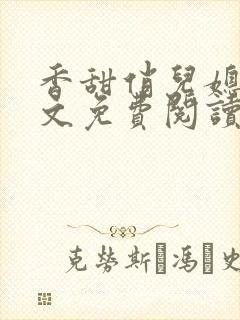 香甜俏兒媳
文免費閱讀
克勞斯·馮·史